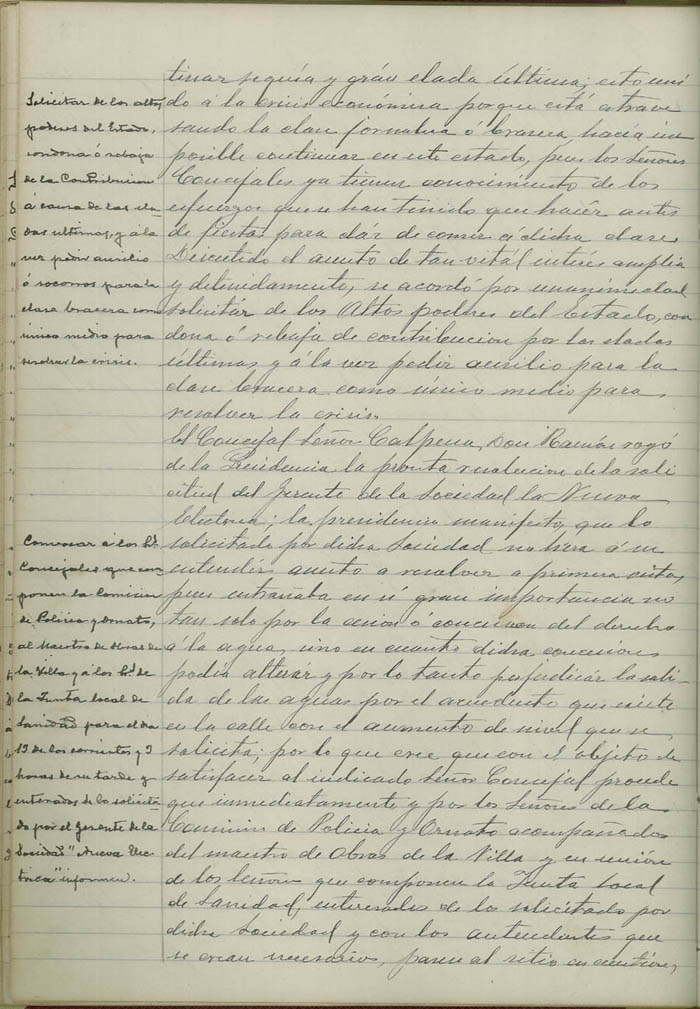 tinaz sequía y grán elada última; esto uni
do á la crisis económica porque está atrave
sando la clase jornalera ó bracera, hacía im
posible continuar en este estado, pues los Señores
Concejales ya tienen conocimiento de los
esfuerzos que se han tenido que hacér antes
de fiestas para dár de comer á dicha clase.
Discutido el asunto de tan vitál interés amplia
y detenidamente, se acordó por unanimidad
solicitár de los Altos poderes del Estado, con
dona ó rebaja de contribucion por las eladas
últimas y á la vez pedir auxilio para la
clase bracera como único medio para
resolver la crisis.
El Concejal Señor Calpena, Don Ramón rogó
de la Presidencia la pronta resolucion de la soli
citud del Gerente de la Sociedad la Nueva
Electrica; la presidencia manifestó, que lo
solicitado por dicha Sociedad no era á su
entender asunto a resolver a primera vista,
pues entrañaba en sí gran importancia no
tan solo por la cesión ó concesion del derecho
á la agua, sino en cuanto dicha concesion
podía alterár y por lo tanto perjudicár la sali
da de las aguas por el acueducto que existe
en la calle con el aumento de nivel que se
solicita; por lo que cree que con el objeto de
satisfacer al indicado Señor Concejal procede
que inmediatamente y por los Señores de la
Comision de Policia y Ornato acompañados
del maestro de Obras de la Villa y en unión
de los Señores que componen la Junta local
de Sanidad, enterados de lo solicitado por
dicha Sociedad y con los antecedentes que
se crean necesarios, pasen al sitio en cuestión,
Solicitar de los altos
poderes del Estado,
condona ó rebaja
de la Contribucion
á causa de las ela
das ultimas, y á la
vez pedir auxilio
ó socorros para la
clase bracera como
único medio para
resolver la crisis.
Convocar á los Srs.
Concejales que com
ponen la Comision
de Policia y Ornato,
al Maestro de Obras de
la Villa y á los Srs. de
la Junta local de
Sanidad para el dia
13 de los corrientes y 3
horas de su tarde y
enterados de lo solicita
do por el Gerente de la
Sociedad "Nueva Elec
trica" informen.